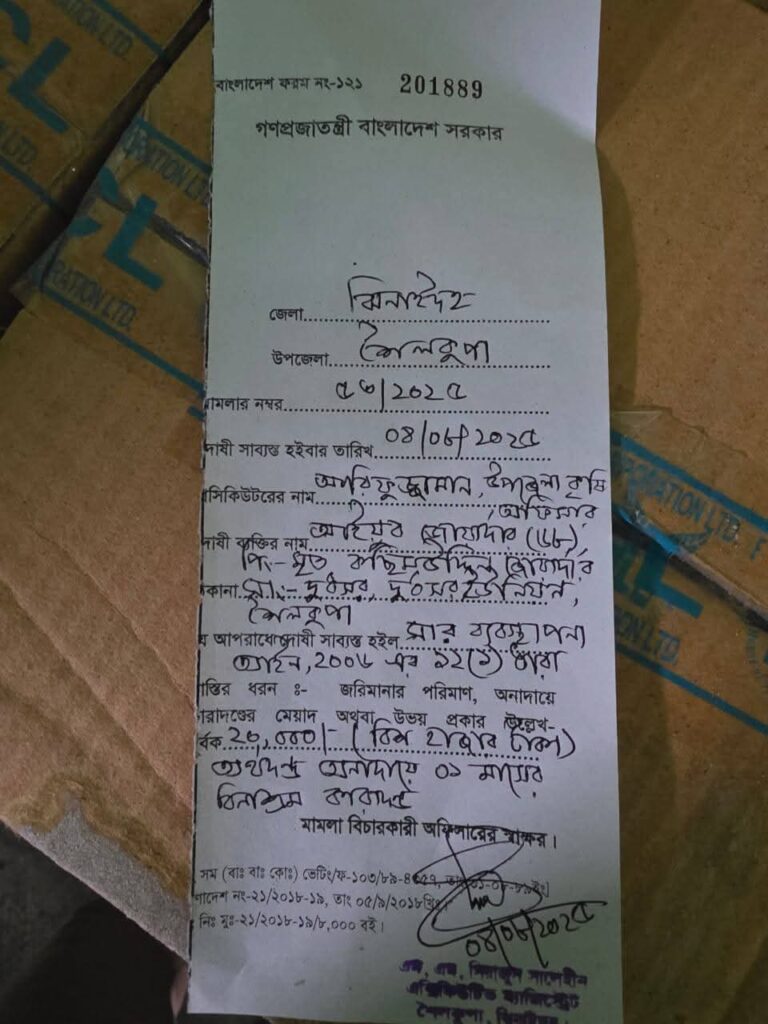 বাংলাদেশ ফরম নং-১২১ 201889
গণপ্রজাতন্ত্রী বাংলাদেশ সরকার
জেলা ঝিনাইদহ
উপজেলা শৈলকুপা
মামলার নম্বর ৫৬/২০২৫
দোষী সাব্যস্ত হইবার তারিখ ০৪/০৮/২০২৫
সিকিউটরের নাম আরিফুজ্জামান, উপজেলা কৃষি
অফিসার
দোষী ব্যক্তির নাম আইয়ুব জোয়ার্দার (৬৮),
পি:- মৃত কছিমউদ্দিন জোয়ার্দার
কানা সা:- দুধসর, দুধসর ইউনিয়ন,
শৈলকুপা
য আপরাধে দোষী সাব্যস্ত হইল সার ব্যবস্থাপনা
আইন, ২০০৬ এর ১২(১) ধারা
স্তির ধরন ঃ- জরিমানার পরিমাণ, অনাদায়ে
কারাদণ্ডের মেয়াদ অথবা উভয় প্রকার উল্লেখ-
র্বক ২০,০০০/- (বিশ হাজার টাকা)
অর্থদন্ড অনাদায়ে ০১ মাসের
বিনাশ্রম কারাদন্ড
মামলা বিচারকারী অফিসারের স্বাক্ষর।
সম (বাঃ বাঃ কোঃ) ভেটিং/ফ-১০৩/৮৯
দেশ নং-২১/২০১৮-১৯, তাং ০৫/৯/২০১৮খ্রিঃ,
নিঃ মুঃ-২১/২০১৮-১৯/৮,০০০ বই।
০৪/০৮/২০২৫
এস, এম, সিরাজুস সালেহীন
এক্সিকিউটিভ ম্যাজিস্ট্রেট
শৈলকুপা, ঝিনাইদহ
CL
ORATION LTD.
CL
ORPORATION LTD.
ORATION LTD. F